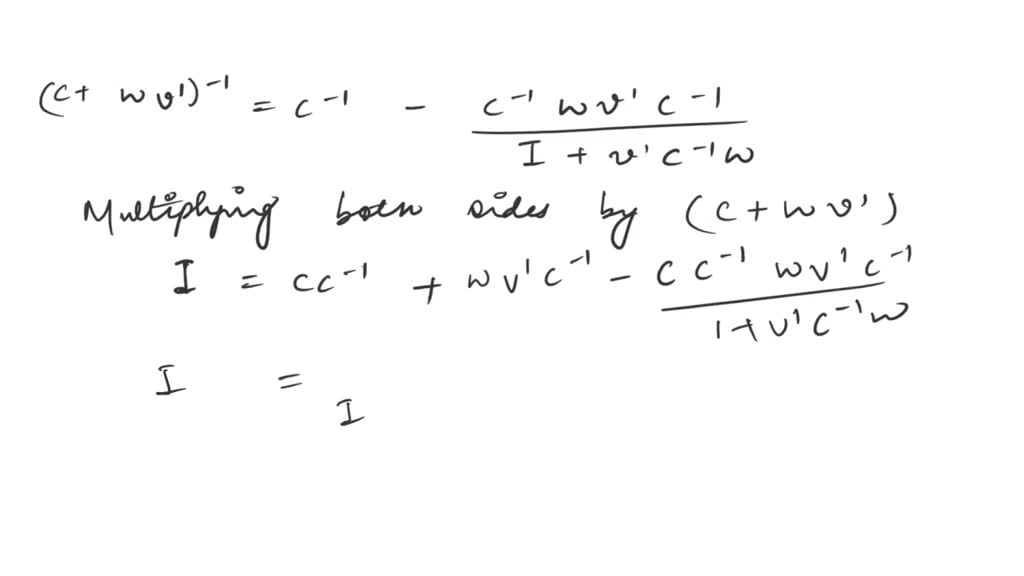 (C + w v')⁻¹ = C⁻¹ - (C⁻¹ w v' C⁻¹) / (I + v' C⁻¹ w)
Multiplying both sides by (C + w v')
I = CC⁻¹ + w v' C⁻¹ - (C C⁻¹ w v' C⁻¹) / (1 + v' C⁻¹ w)
I = I